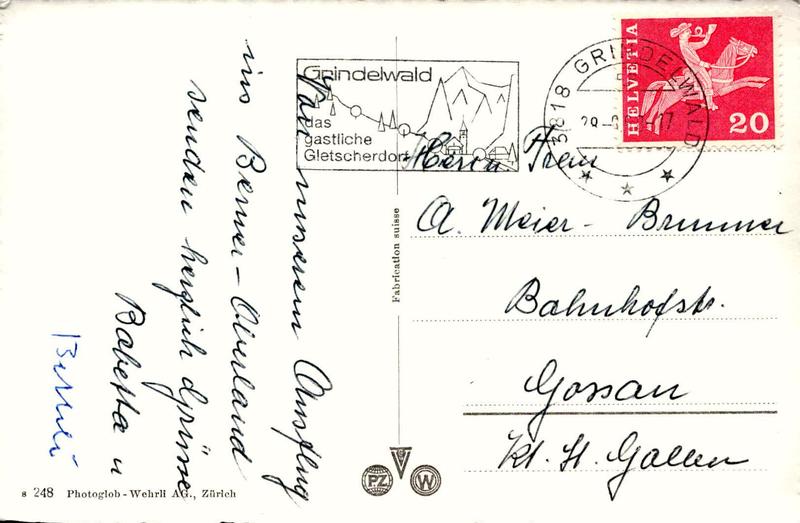 Von unserem Ausflug
ins Berner-Oberland
senden herzlich Grüsse
Babetta u
Grindelwald
das
gastliche
Gletscherdorf
3818 GRINDELWALD
HELVETIA
20
Herrn Frau
A. Meier-Brunner
Bahnhofstr.
Gossau
Kt. St. Gallen
Fabrication suisse
PZ
W
s 248 Photoglob-Wehrli AG., Zürich